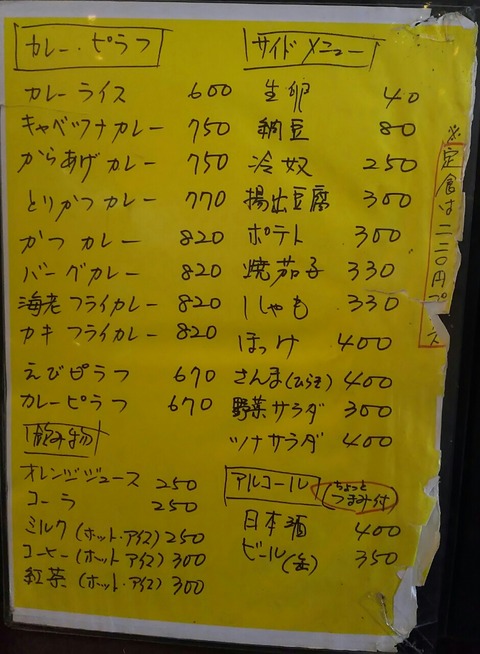 カレー・ピラフ
カレーライス 600
キャベツナカレー 750
からあげカレー 750
とりかつカレー 770
かつカレー 820
バーグカレー 820
海老フライカレー 820
カキフライカレー 820
えびピラフ 670
カレーピラフ 670
飲み物
オレンジジュース 250
コーラ 250
ミルク(ホット・アイス) 250
コーヒー(ホット・アイス) 300
紅茶(ホット・アイス) 300
サイドメニュー
生卵 40
納豆 80
冷奴 250
揚出豆腐 300
ポテト 300
焼茄子 330
ししゃも 330
ほっけ 400
さんま(ひらき) 400
野菜サラダ 300
ツナサラダ 400
アルコール ちょっと
つまみ付
日本酒 400
ビール(缶) 350
※定食は二二〇円プラス